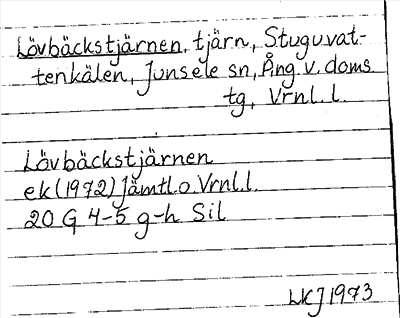 Lövbäckstjärnen, tjärn, Stuguvat-
tenkälen, Junsele sn, Ång. v. doms
tg, Vrnl. l.
Lövbäckstjärnen
ek (1972) Jämtl. o Vrnl. l.
20 G 4-5 g-h Sil
LKJ 1973